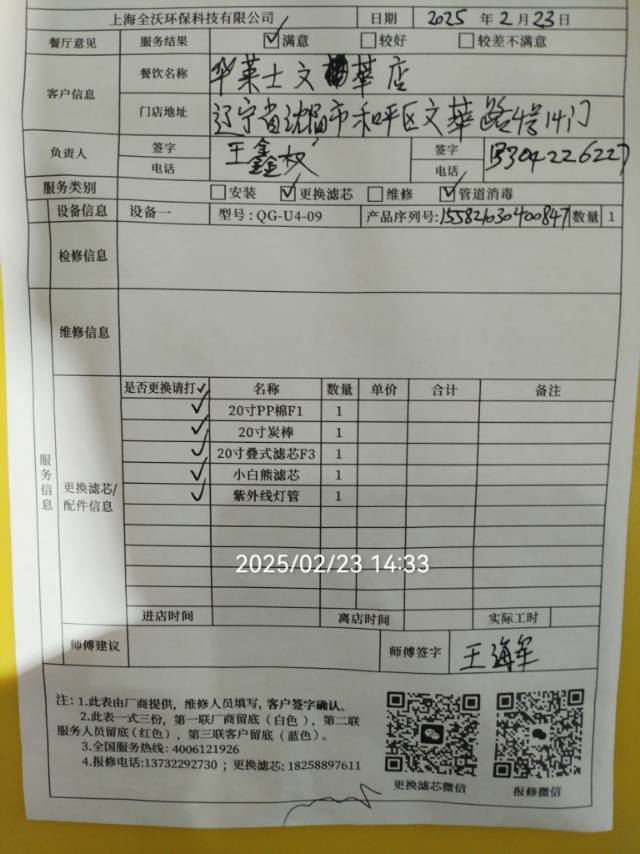 上海全沃环保科技有限公司 日期 2025 年 2 月 23 日
餐厅意见 服务结果 ☑满意 □较好 □较差不满意
客户信息 餐饮名称 华莱士文華店
门店地址 辽宁省沈阳市和平区文華路4号14门
负责人 签字 王鑫权 签字
电话 电话 13304226227
服务类别 □安装 ☑更换滤芯 □维修 ☑管道消毒
设备信息 设备一 型号:QG-U4-09 产品序列号: 数量 1
检修信息
维修信息
服务信息
更换滤芯/
配件信息
是否更换请打✓ 名称 数量 单价 合计 备注
✓ 20寸PP棉F1 1
✓ 20寸炭棒 1
✓ 20寸叠式滤芯F3 1
✓ 小白熊滤芯 1
✓ 紫外线灯管 1
2025/02/23 14:33
进店时间 离店时间 实际工时
师傅建议 师傅签字 王海军
注: 1.此表由厂商提供，维修人员填写，客户签字确认。
2.此表一式三份，第一联厂商留底（白色），第二联
服务人员留底（红色），第三联客户留底（蓝色）。
3.全国服务热线: 4006121926
4.报修电话:13732292730 ；更换滤芯: 18258897611
更换滤芯微信 报修微信